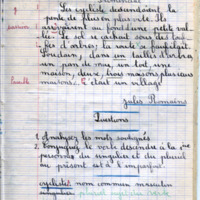 Les cyclistes descendaient la
pente de plus en plus vite. Ils
arrivèrent au fond d'une petite val-
lée. Le sol se cachait sous des touf-
fes d'arbres; la route se faufilait.
Soudain, dans un taillis d'arbres
un pan de mur, un toit, une
maison, deux, trois maisons, plusieurs
maisons. c'était un village
Jules Romains
Questions
1 Analysez les mots soulignés
2 Conjuguez le verbe descendre à la 1ère
personne du singulier et du pluriel
au présent et à l'imparfait.
cyclistes nom commun masculin
pluriel